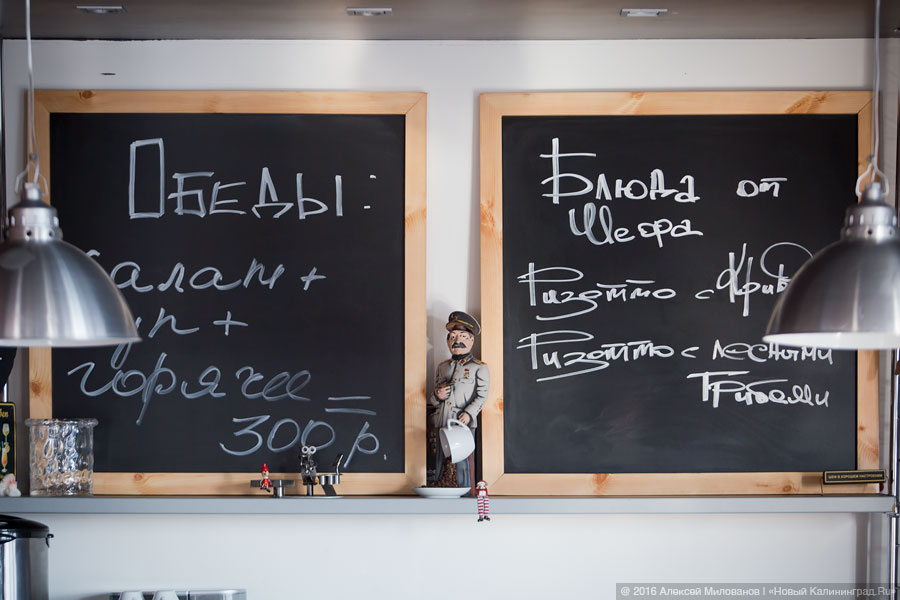 Обеды:
салат +
суп +
горячее =
300 р.
Блюда от
Шефа
Ризотто с
Ризотто с лесными
Грибами
© 2016 Алексей Милованов | «Новый Калининград.Ru»